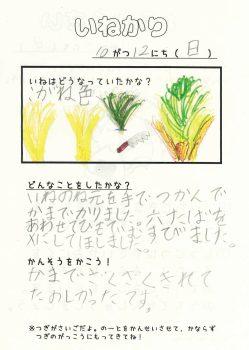 いねかり
10がつ12にち(日)
いねはどうなっていたかな?
こがね色
どんなことをしたかな?
いねのね元を手でつかんで
かまでかりました。六たばを
あわせてひもでむすびました。
Xにしてほしました。
かんそうをかこう!
かまでざくざくきれて
たのしかったです。
※つぎがさいごだよ。のーとをかんせいさせて、かならず
つぎのがっこうにもってきてね!